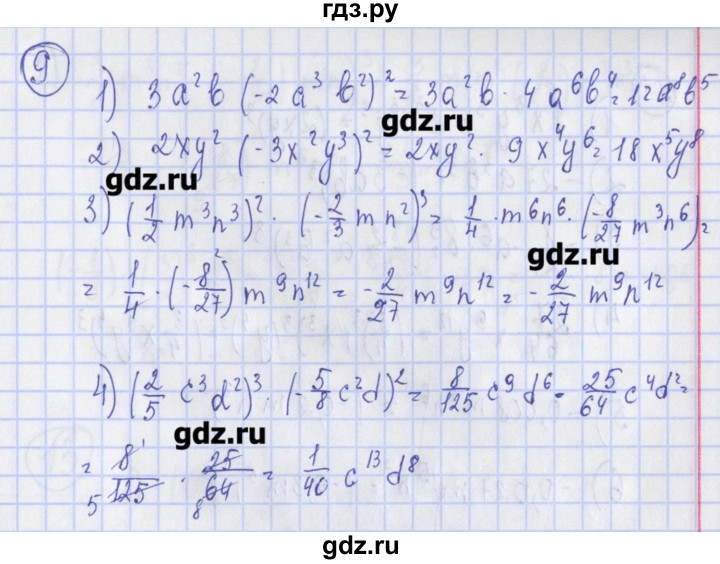 гдз.ру
9
1) 3a²b (-2a³b²)² = 3a²b · 4a⁶b⁴ = 12a⁸b⁵
gdz.ru
2) 2xy² (-3x²y³)² = 2xy² · 9x⁴y⁶ = 18x⁵y⁸
gdz.ru
3) (1/2 m³n³)² · (-2/3 mn²)³ = 1/4 · m⁶n⁶ · (-8/27 m³n⁶) =
gdz.ru
= 1/4 · (-8²/27) m⁹n¹² = -2/27 m⁹n¹² = -2/27 m⁹n¹²
4) (2/5 c³d²)³ · (-5/8 c²d)² = 8/125 c⁹d⁶ · 25/64 c⁴d² =
gdz.ru
= 8¹/5 125 · 25/8 64 = 1/40 c¹³d⁸
gdz.ru